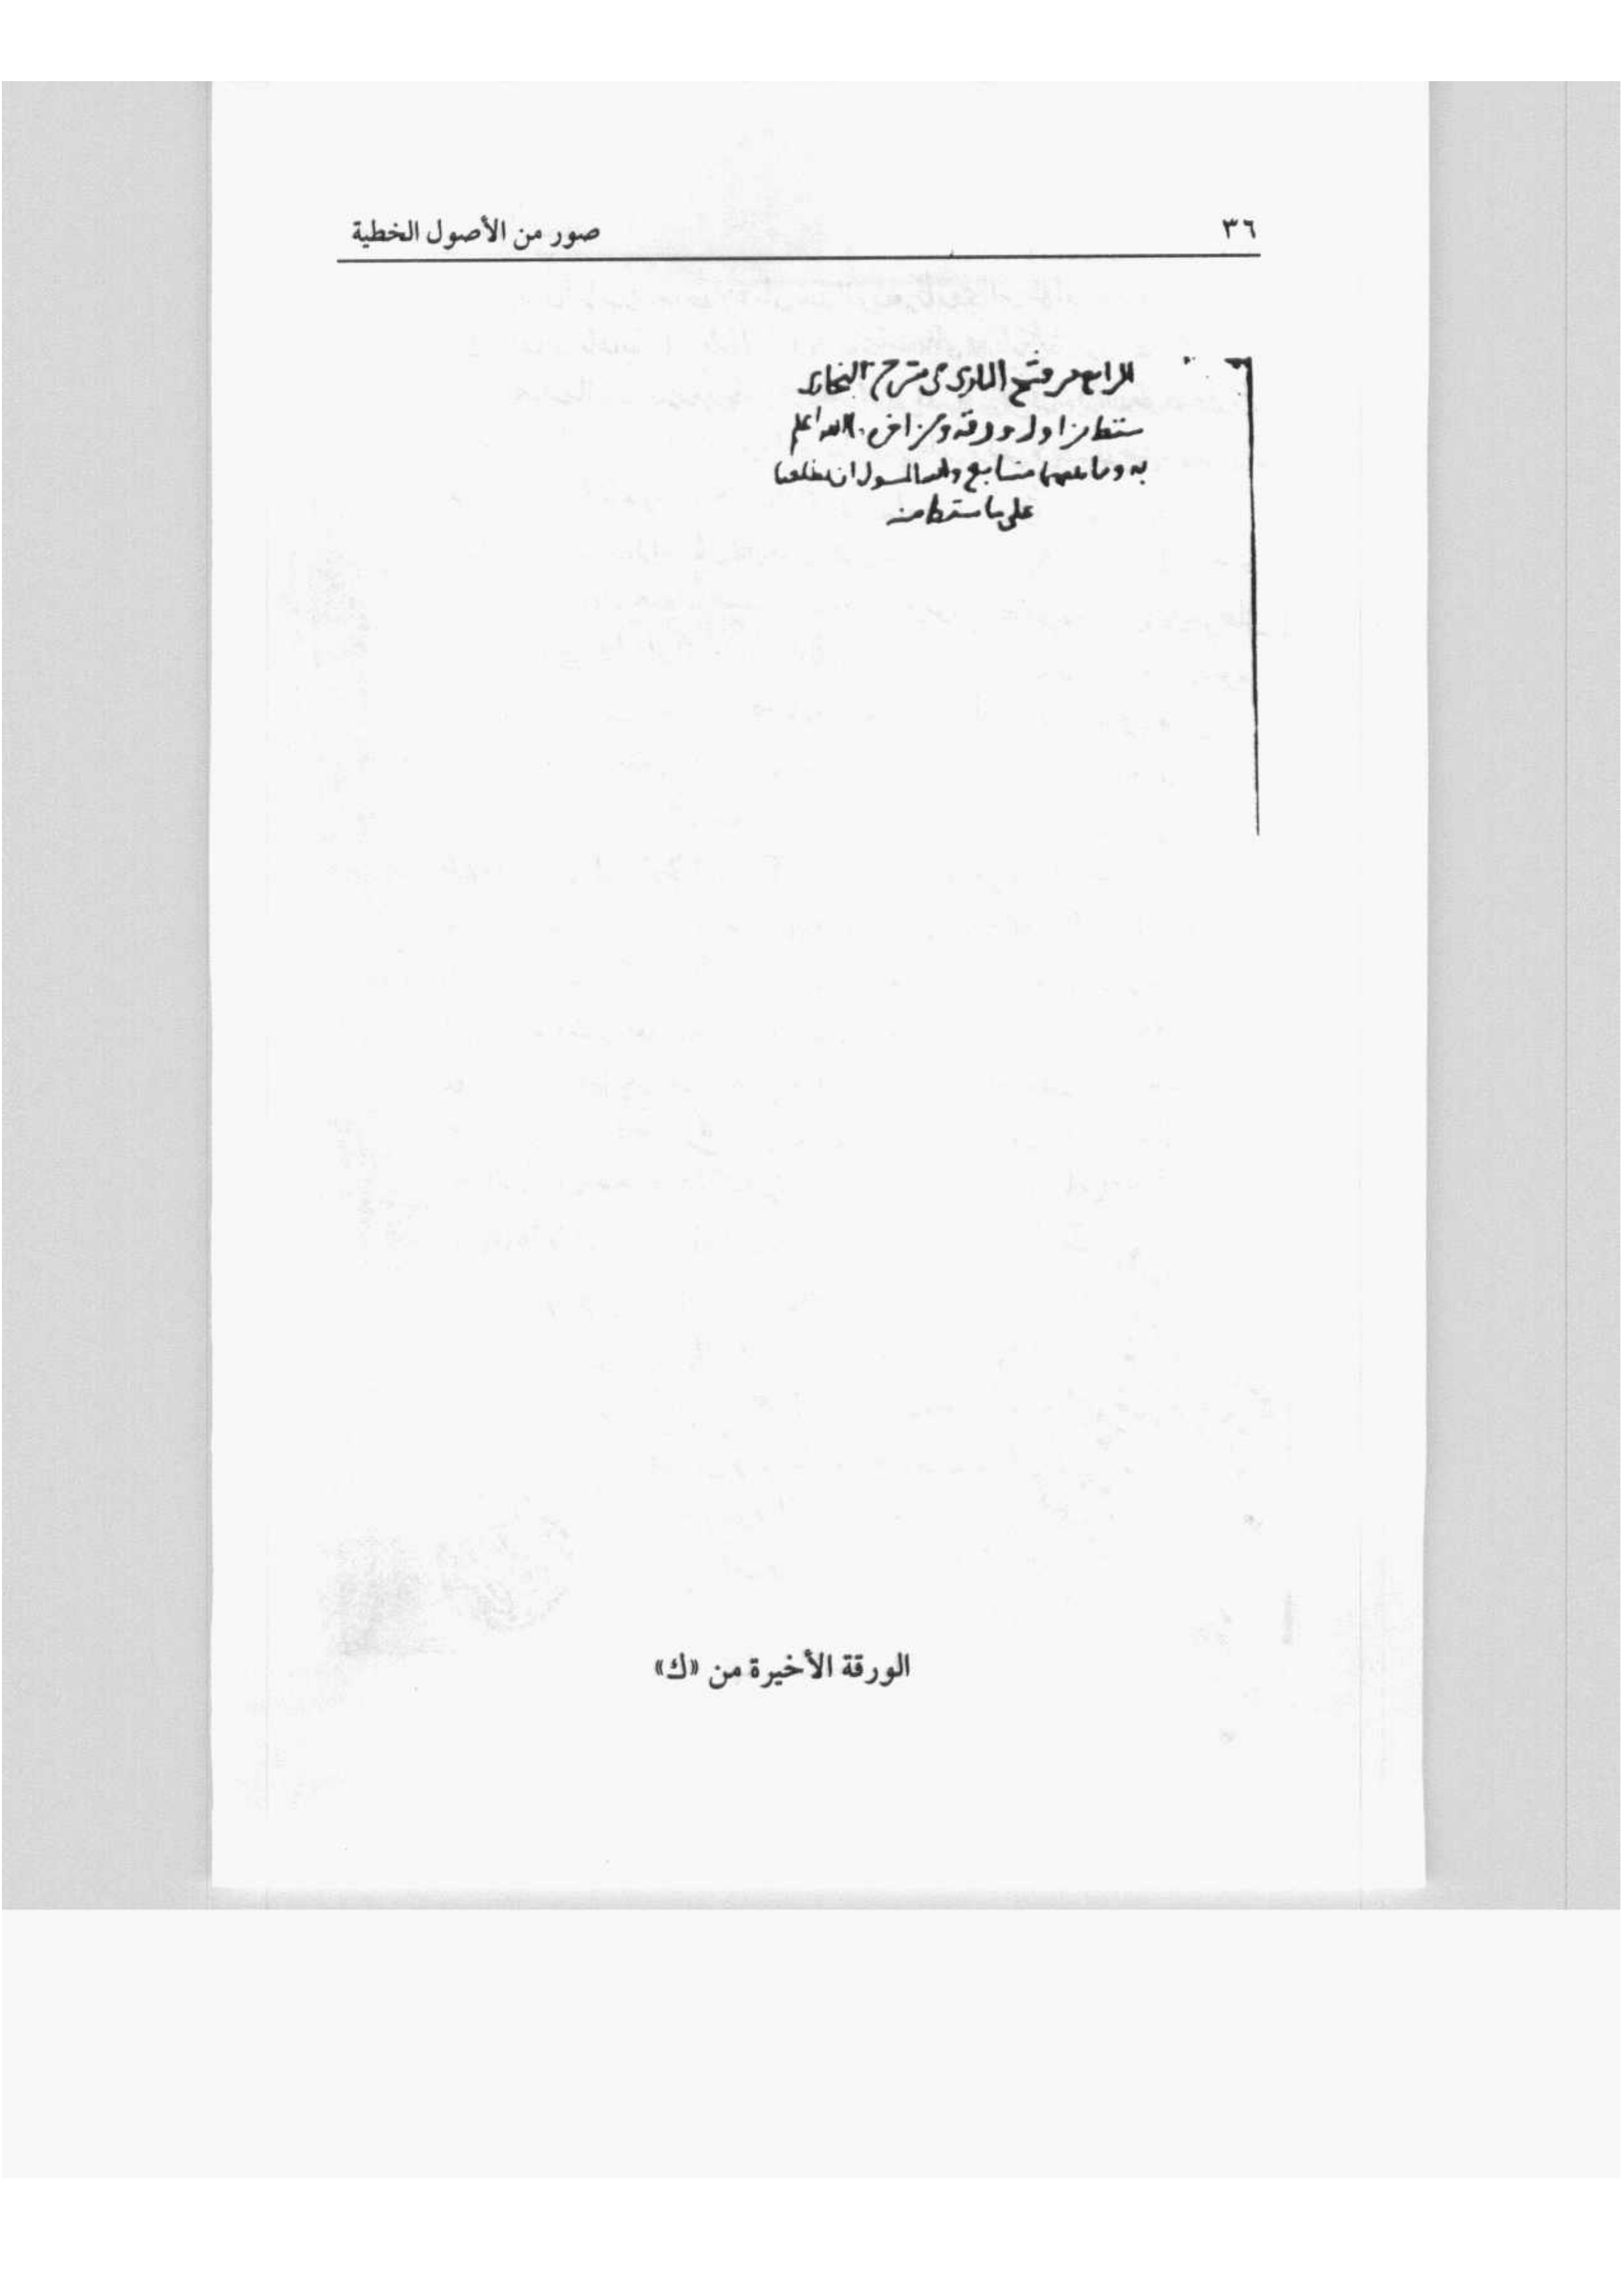 ٣٦
صور من الأصول الخطية
الرابع من فتح الباري في شرح البخاري
سقط من اوله ورقة ومن اخره الله اعلم
به وما بينهما متتابع والله المسول ان يطلعنا
على ما سقط منه
الورقة الأخيرة من «ك»